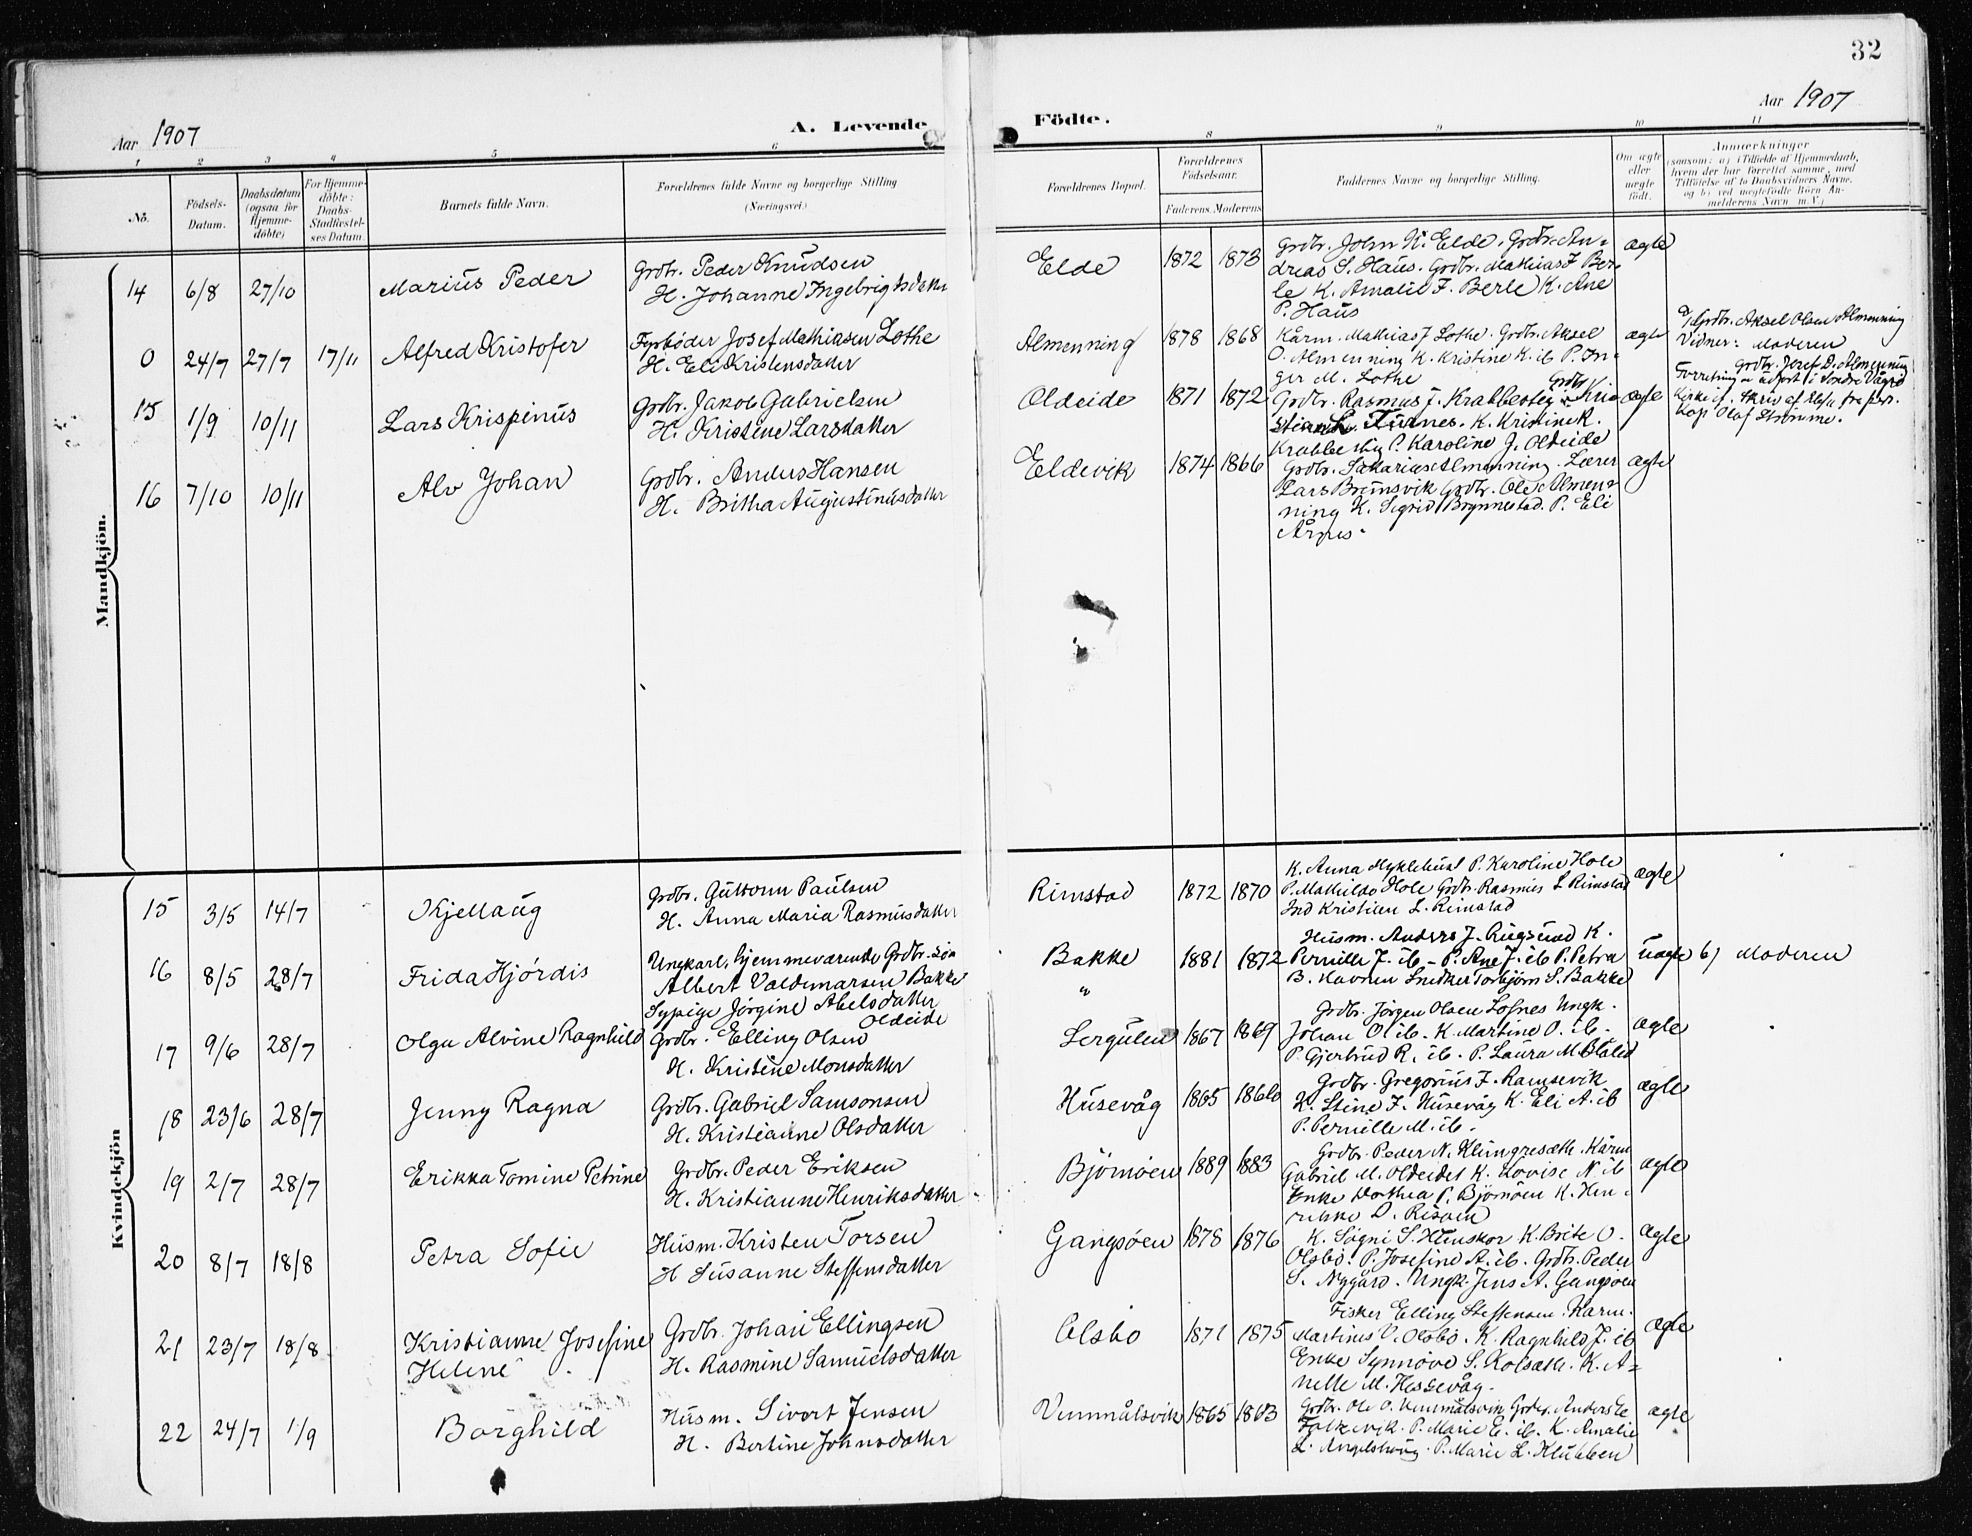 32
Aar 1907
A. Levende
Födte.
Aar 1907
1 2 3 4 5 6 8 9 10 11
No.
Födsels-Datum.
Daabsdatum (ogsaa for Hjemme-döbte)
For Hjemme-döbte: Daabs-Stadfestel-ses Datum
Barnets fulde Navn.
Forældrenes fulde Navne og borgerlige Stilling
(Næringsvei.)
Forældrenes Bopæl.
Forældrenes Födselsaar.
Faderens. Moderens
Faddernes Navne og borgerlige Stilling.
Om ægte eller uægte födt.
Anmærkninger
(saasom: a) i Tilfælde af Hjemmedaab,
hvem der har forrettet samme, med
Tilföielse af to Daabsvidners Navne,
og b) ved uegtefödte Börn An-
melderens Navn m. V.)
Mandkjön.
14 6/8 27/10 Marius Peder
Grdbr. Peder Knudsen
H. Johanne Ingebrigtsdatter
Elde 1872 1873
Grdbr. John K. Elde. Grdbr. An-
dreas S. Haus. Grdbr. Mathias J. Ber-
le K. Amalie F. Berle K. Ane
P. Haus
ægte
0 24/7 27/7 17/11 Alfred Kristofer
Fyrböder Josef Mathiasen Lothe
H. Eli Kristensdatter
Almenning 1878 1868
Kårm. Mathias J Lothe. Grdbr. Aksel
O. Almenning K. Kristine K. ib P. In-
ger M. Lothe
ægte
a) Grdbr. Aksel Olsen Almenning
Vidner: Moderen
Grdbr. Josef D. Almenning
Forretning udfört i Söndre Vågsö
Kirke
Kap. Olaf Strömme.
15 1/9 10/11 Lars Krispinus
Grdbr. Jakob Gabrielsen
H. Kristine Larsdatter
Oldeide 1871 1872
Grdbr. Rasmus J. Krabbestig Grdbr Kri-
stian L. Turnes. K. Kristine K.
Krabbestig P. Karoline J. Oldeide
ægte
16 7/10 10/11 Alv Johan
Grdbr. Anders Hansen
H. Britha Augustinusdatter
Eldevik 1874 1866
Grdbr. Sakarias Almenning. Lærer
Lars Bremsvik Grdbr. Ole Almen-
ning K. Sigrid Brynnestad. P. Eli
Årnes.
ægte
Kvindekjön
15 3/5 14/7 Kjellaug
Grdbr. Guttorm Paulsen
H. Anna Maria Rasmusdatter
Rimstad 1872 1870
K. Anna Myklebust P. Karoline Hole
P. Mathilde Hole Grdbr. Rasmus L Rimstad
Ind Kristian L. Rimstad
ægte
16 8/5 28/7 Frida Hjördis
Ungkarl, hjemmeværende Grdbr. sön
Albert Valdemarsen Bakke
Sypige Jörgine Abelsdatter
Oldeide
Bakke 1881 1872
"
Husm. Anders J. Rugsund K.
Pernille J. ib - P. Ane J. ib P. Petra
B. Havnen Snedker Torbjörn S. Bakke
uægte b) Moderen
17 9/6 28/7 Olga Alvine Ragnhild
Grdbr. Elling Olsen
H. Kristine Monsdatter
Sergulen 1867 1869
Grdbr. Jörgen Olsen Lofnes Ungk.
Johan O. ib. K. Martine O. ib.
P. Gjertrud R. ib. P. Laura M. Blålid
ægte
18 23/6 28/7 Jenny Ragna
Grdbr. Gabriel Samsonsen
H. Kristianne Olsdatter
Husevåg 1865 1866
Grdbr. Gregorius J. Ramsevik
K. Stine J. Husevåg K. Eli A. ib
P. Pernille M. ib.
ægte
19 2/7 28/7 Erikka Tomine Petrine
Grdbr. Peder Eriksen
H. Kristianne Henriksdatter
Björnöen 1889 1883
Grdbr. Peder N. Klungresæth. Kårm
Gabriel M. Oldeidet K. Lovise N ib
Enke Dorthea P. Björnöen K. Hen-
rikke D. Risöen
ægte
20 8/7 18/8 Petra Sofie
Husm. Kristen Torsen
H Susanne Steffensdatter
Gangsöen 1878 1876
K. Sögni S. Hunskor K. Brite O.
Olsbö. P. Josefine A. ib. Grdbr. Peder
S. Nygård. Ungk. Jens A. Gangsöen
ægte
21 23/7 18/8 Kristianne Josefine
Helene
Grdbr. Johan Ellingsen
H. Rasmine Samuelsdatter
Olsbö 1871 1875
Fisker Elling Steffensen. Karm.
Martinus V. Olsbö. K. Ragnhild J. ib
Enke Synnöve S. Kolsæth. K. A-
nette M. Hessevåg.
ægte
22 24/7 1/9 Borghild
Husm. Sivert Jensen
H. Bertine Johnsdatter
Vemmålsvik 1865 1863
Grdbr. Ole O. Vemmålsvik Grdbr. Anders E
Falkevik. P. Marie E. ib. K. Amalie
L. Angelshaug. P. Marie L. Klubben
ægte